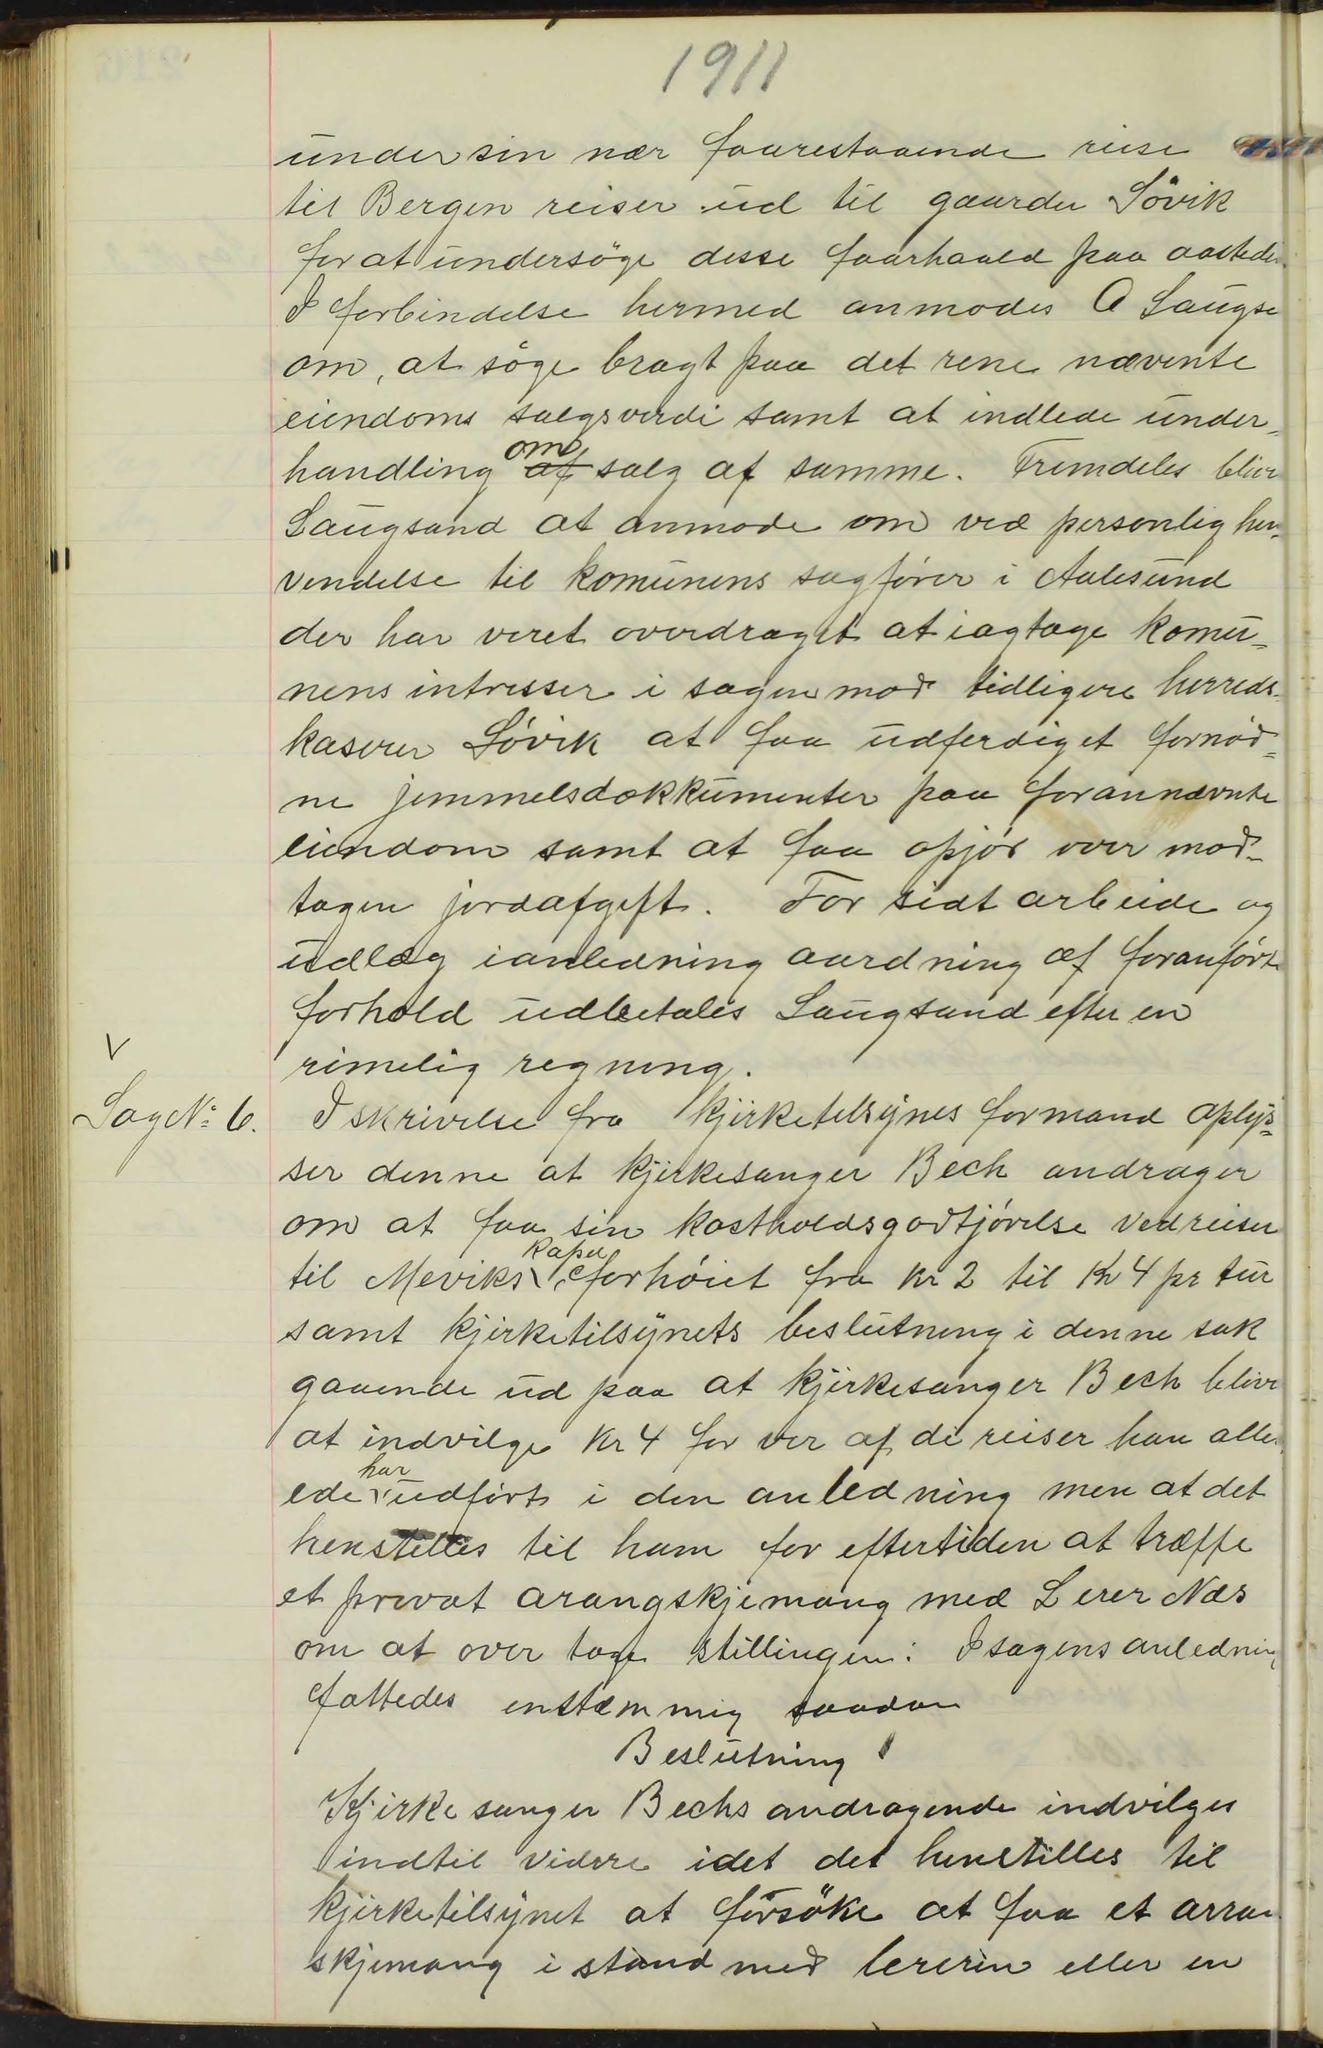 1911
under sin nær faarestaaende reise
til Bergen reiser ud til gaarden Søvik
for at undersöge disse faarhaald paa aasteden
I forbindelse hermed anmodes O Laugse
om, at söge bragt paa det rene nævente
eiendoms salgsverdi samt at indlede under-
handling om af salg af samme. Fremdeles bliver
Laugsand at anmode om ved personlig hen-
vendelse til komunens sagfører i Aalesund
der har veret overdraget at iagtage komu-
nens intresser i sagen mod tidligere herreds-
kaserer Søvik at faa udferdiget fornød-
ne jemmelsdokkumenter paa forannævnte
eiendom samt at faa opjør over mod-
tagen jordafgift. For sidt arbeide og
udlæg ianledning aardning af foranførte
forhold udbetales Laugsand efter en
rimelig regning.
V
Sag No 6. I skrivelse fra kjirketilsynes formand oplys-
ser denne at kjirkesanger Bech andrager
om at faa sin kostholdsgodtjørelse ved reiser
til Meviks kapel forhøiet fra kr 2 til kr 4 pr tur
samt kjirketilsynets beslutning i denne sak
gaaende ud paa at kjirkesanger Bech bliver
at indvilge kr 4 for ver af de reiser han alle-
ede har udført i den anledning men at det
henstilles til ham for eftertiden at træffe
et privat arangskjemang med Lerer Næs
om at over tage stillingen: I sagens anledning
fattedes enstemmig saadan
Beslutning
Kjirkesanger Bechs andragende indvilges
indtil videre idet det henstilles til
kjirketilsynet at försöke at faa et arran
skjemang i stand med lereren eller en